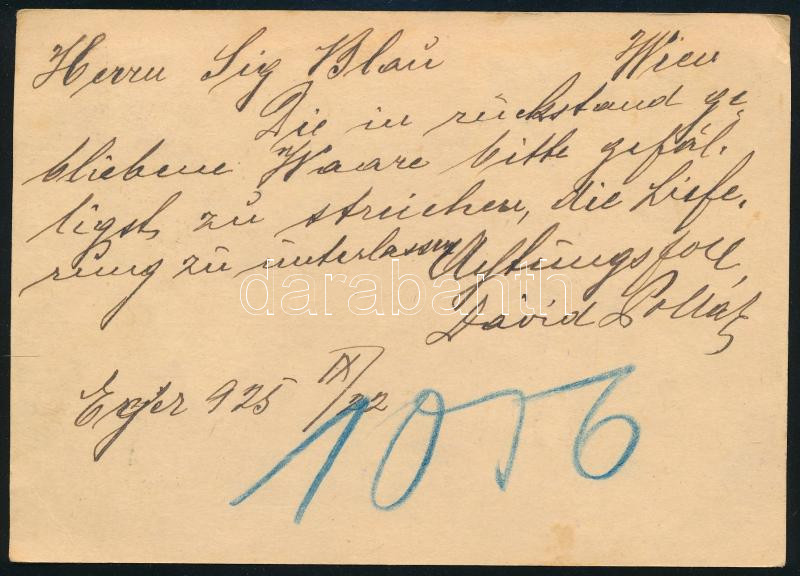 Herrn Sig Blau Wien
Die in rückstand ge-
bliebene Waare bitte gefäl-
ligst zu streichen, die Liefe-
rung zu unterlassen Achtungsfoll
Dávid Pollák
Eger 925 IX/22
1056
darabanth